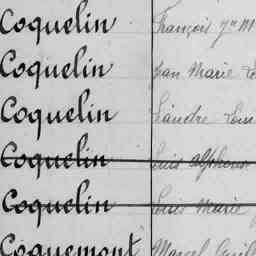 Coquelin François Jn M
Coquelin Jean Marie
Coquelin Léandre Louis
Coquelin Louis Alphonse
Coquelin Louis Marie
Coquemont Marcel Guil